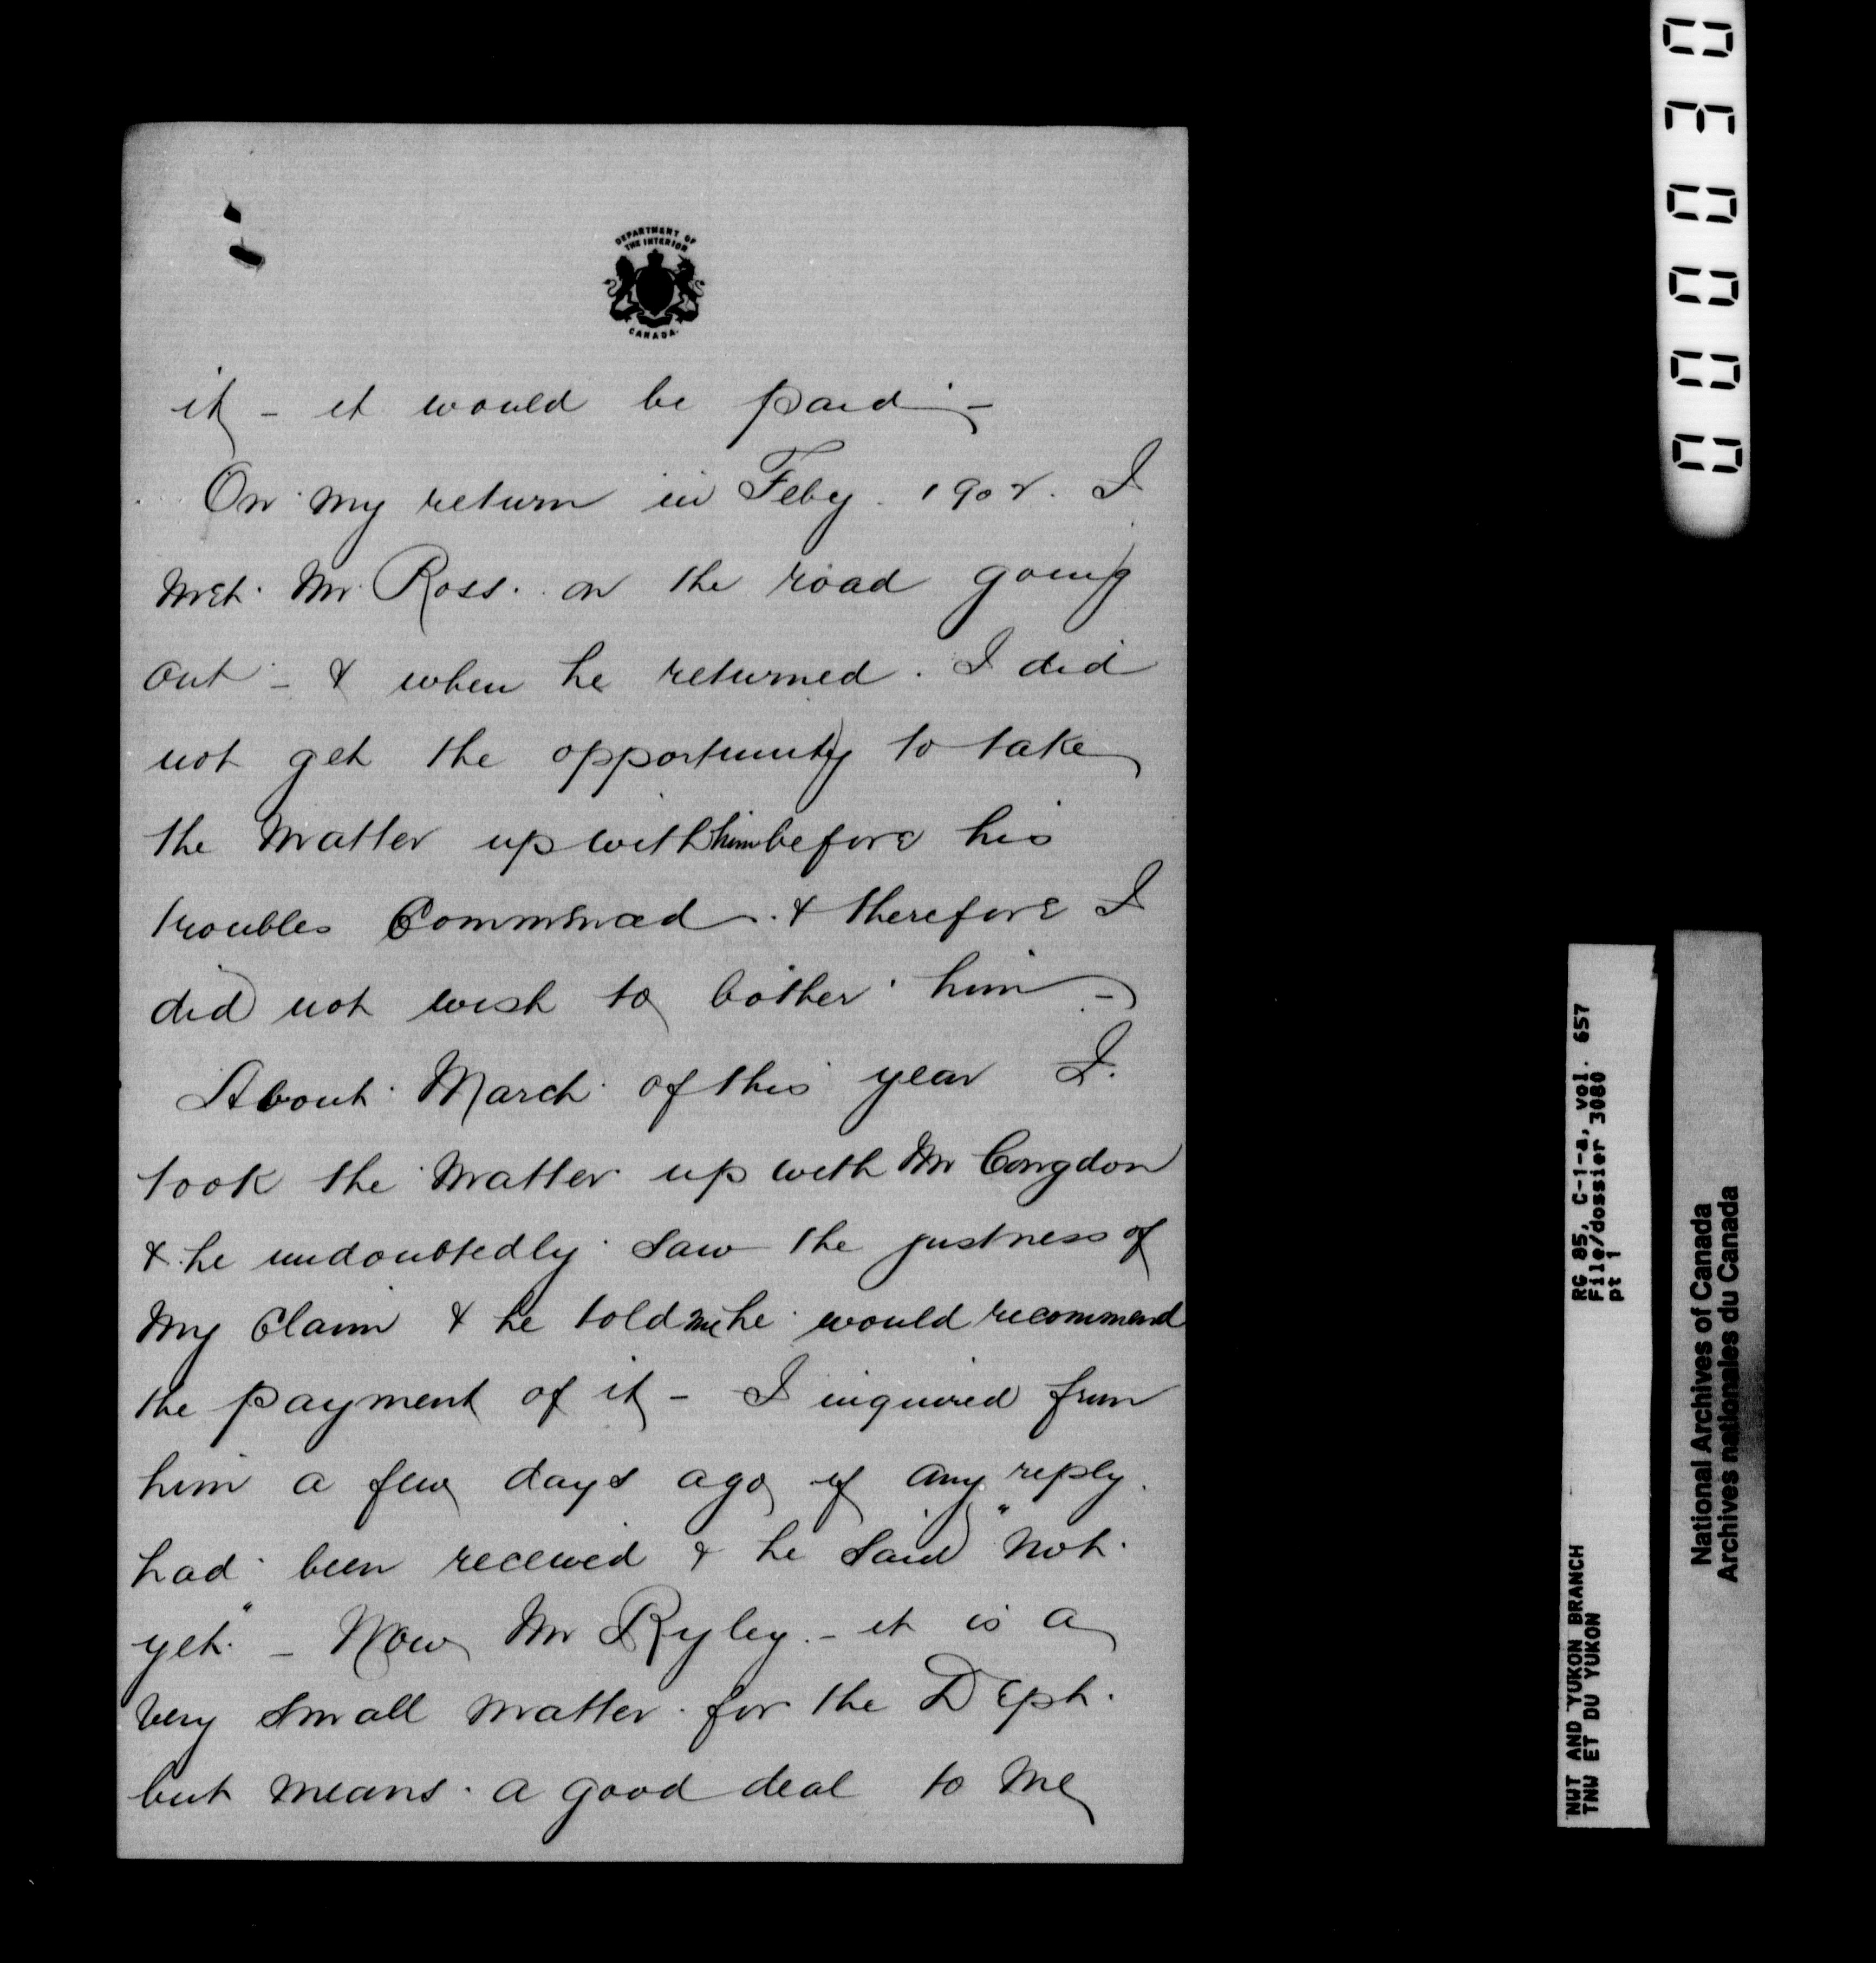 DEPARTMENT OF
THE INTERIOR
CANADA.
it - it would be paid -
On my return in Feby. 1902. I
met Mr Ross. on the road going
out - & when he returned. I did
not get the opportunity to take
the matter up with him before his
troubles Commenced - & therefore I
did not wish to bother him -
About March of this year I.
took the matter up with Mr Congdon
& he undoubtedly saw the justness of
my claim & he told me he would recommend
the payment of it - I inquired from
him a few days ago if any reply.
had been received & he said "not.
yet" - Now Mr Ryley. - it is a
very small matter for the Dept.
but means a good deal to me
000030
RG 85, C-1-a, vol. 657
File/dossier 3080
pt 1
NWT AND YUKON BRANCH
TNW ET DU YUKON
National Archives of Canada
Archives nationales du Canada